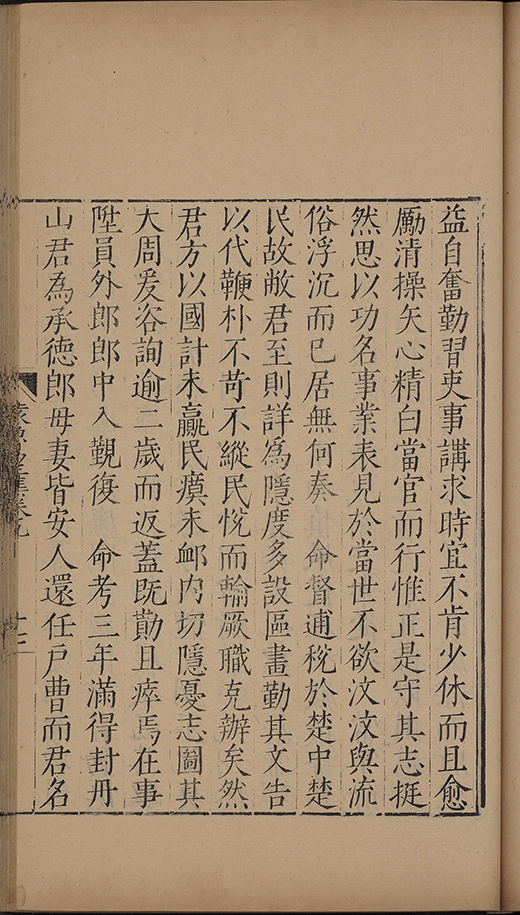 益自奮勤習吏事講求時宜不肯少休而且愈
勵清操矢心精白當官而行惟正是守其志挺
然思以功名事業表見於當世不欲汶汶與流
俗浮沉而已居無何奏 命督逋稅於楚中楚
民故敝君至則詳為隱度多設區畫勤其文告
以代鞭朴不苛不縱民悅而輸厥職克辦矣然
君方以國計未贏民瘼未䘏內切隱憂志圖其
大周爰咨詢逾二歲而返蓋既勩且瘁焉在事
陞員外郎郎中入覲復 命考三年滿得封冊
山君為承德郎母妻皆安人還任戶曹而君名
卷九
十三